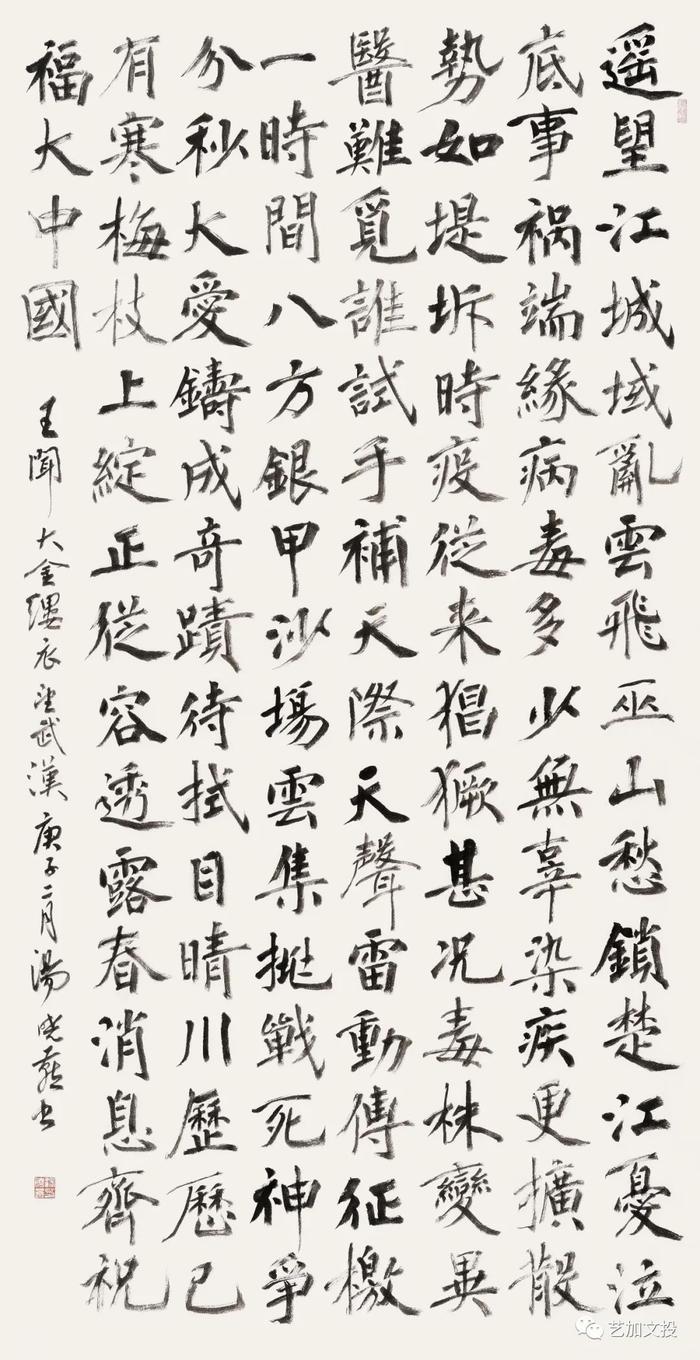 遥望江城域亂雲飛巫山愁鎖楚江憂泣
底事禍端緣病毒多少無辜染疾更擴散
勢如堤坼時疫從来猖獗甚况毒株變異
醫難覓誰試手補天際天聲雷動傳征檄
一時間八方銀甲沙場雲集挑戰死神爭
分秒大愛鑄成奇蹟待拭目晴川歷歷已
有寒梅枝上綻正從容透露春消息齊祝
福大中國
王聞 大金縷衣 望武漢 庚子二月湯曉燕书
艺加文投